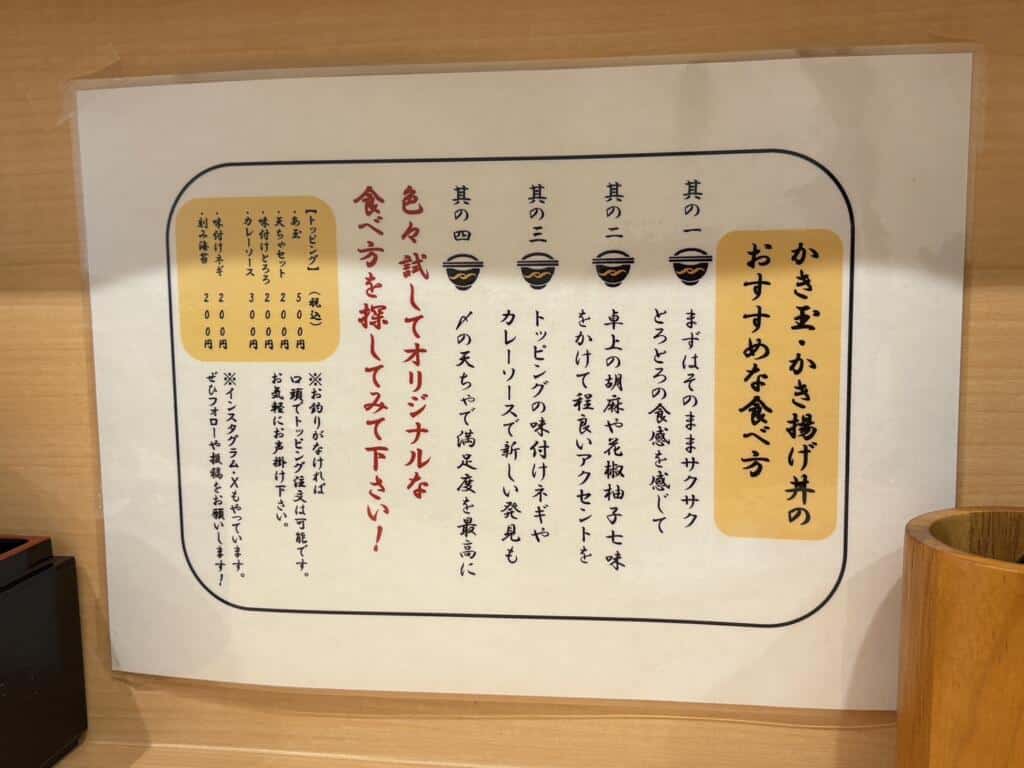 かき玉・かき揚げ丼の
おすすめな食べ方
其の一
まずはそのままサクサク
とろとろの食感を感じて
其の二
卓上の胡麻や花椒柚子七味
をかけて程良いアクセントを
其の三
トッピングの味付けネギや
カレーソースで新しい発見も
其の四
〆の天ちゃで満足度を最高に
色々試してオリジナルな
食べ方を探してみて下さい!
【トッピング】(税込)
・天ちゃセット 200円
・味付けとろろ 200円
・カレーソース 300円
・味付けネギ 200円
・刻み海苔 200円
※お釣りがなければ
口頭でトッピング注文は可能です。
お気軽にお声掛け下さい。
※インスタグラム・Xもやっています。
ぜひフォローや投稿をお願いします!